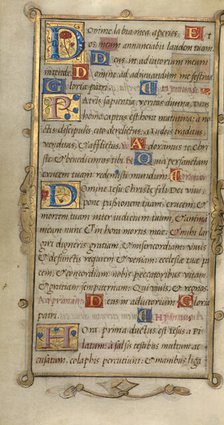 Domine labia mea aperies. Et
os meum annunciabit laudem tuam.
Deus in adiutorium meum
intende. Domine ad adiuuandum me festina.
Gloria patri.
Patris sapientia, veritas diuina, deus
homo captus est hora matutina: a no-
tis discipulis cito derelictus, a iudæis traditus
venditus, & afflictus. Adoramus te Chri-
ste & benedicimus tibi. Quia per sanctam
crucem tuam redemisti mundum.
Domine Iesu Christe fili Dei viui
pone passionem tuam crucem, &
mortem tuam inter iudicium tuum, & animam
meam nunc & in hora mortis meæ: & mihi lar-
giri digneris gratiam, & misericordiam viuis
& defunctis requiem & veniam, ecclesiæ
pacem & concordiam, nobis peccatoribus vitam
& gratiam sempiternam. Qui viuis & regnas.
Ad primam. Deus in adiutorium Gloria
patri.
Hora prima ductus est Iesus a Pi-
latum, a falsis testibus multum ac-
cusatum, colaphis percutiunt: & manibus liga